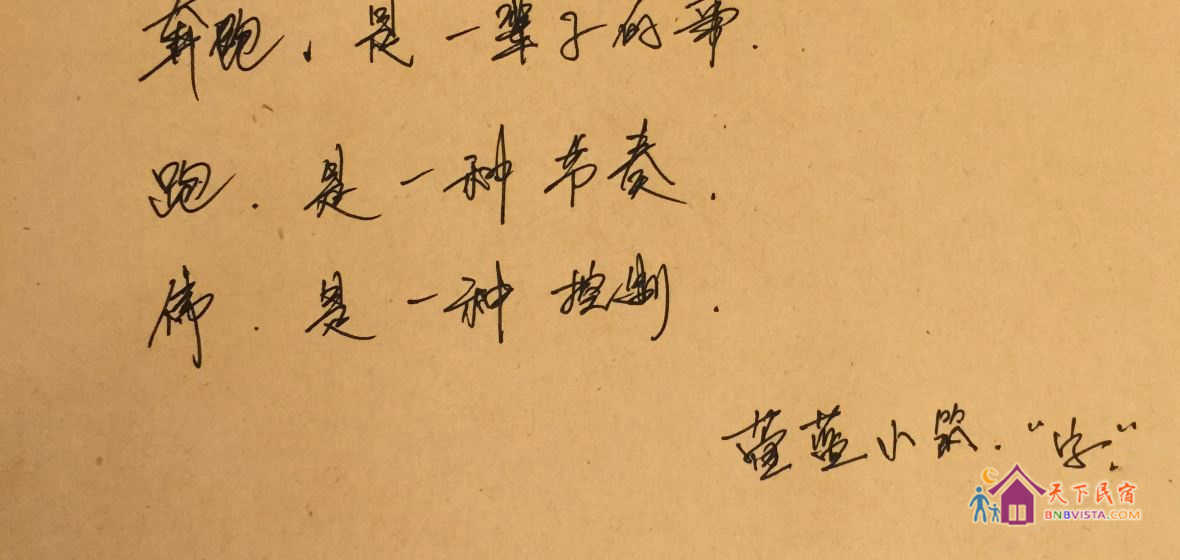 奔跑、是一辈子的事.
跑.是一种节奏.
停.是一种控制.
蓝小筑."字."
天下民宿
BNBVISTA.COM